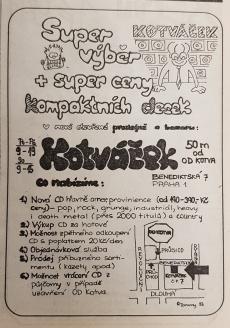 Super
výběr
KOTVÁČEK
+ super ceny
kompaktních desek
v nově otevřené prodejně a bazaru:
Po-Pá
9-19
So
9-15
Kotváček
50 m
od
OD KOTVA
BENEDIKTSKÁ 7
PRAHA 1
Co nabízíme:
1.) Nová CD hlavně amer. provinience (od 410-390,-Kč
ceny) - pop, rock, grunge, industriál, heavy
i death metal (přes 2000 titulů) a country
2.) Výkup CD za hotové
3.) Možnost zpětného odkoupení
CD s poplatkem 20 Kč/den
4.) Objednávková služba
5.) Prodej příbuzného sorti-
mentu (kazety, apod.)
6.) Možnost vrácení CD z
půjčovny v případě
uzavření OD Kotva.
OD KOTVA
PRŮCHOD
BENEDIKTSKÁ
KOTVÁČEK
č. 7
DLOUHÁ